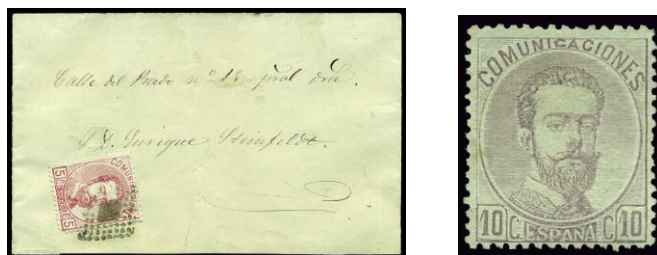 Calle del Prado nº 18 pral dra.
S. D. Enrique Steinfeldt.
5 C. ESPAÑA C. 5
COMUNICACIONES
COMUNICACIONES
10 C. ESPAÑA C 10